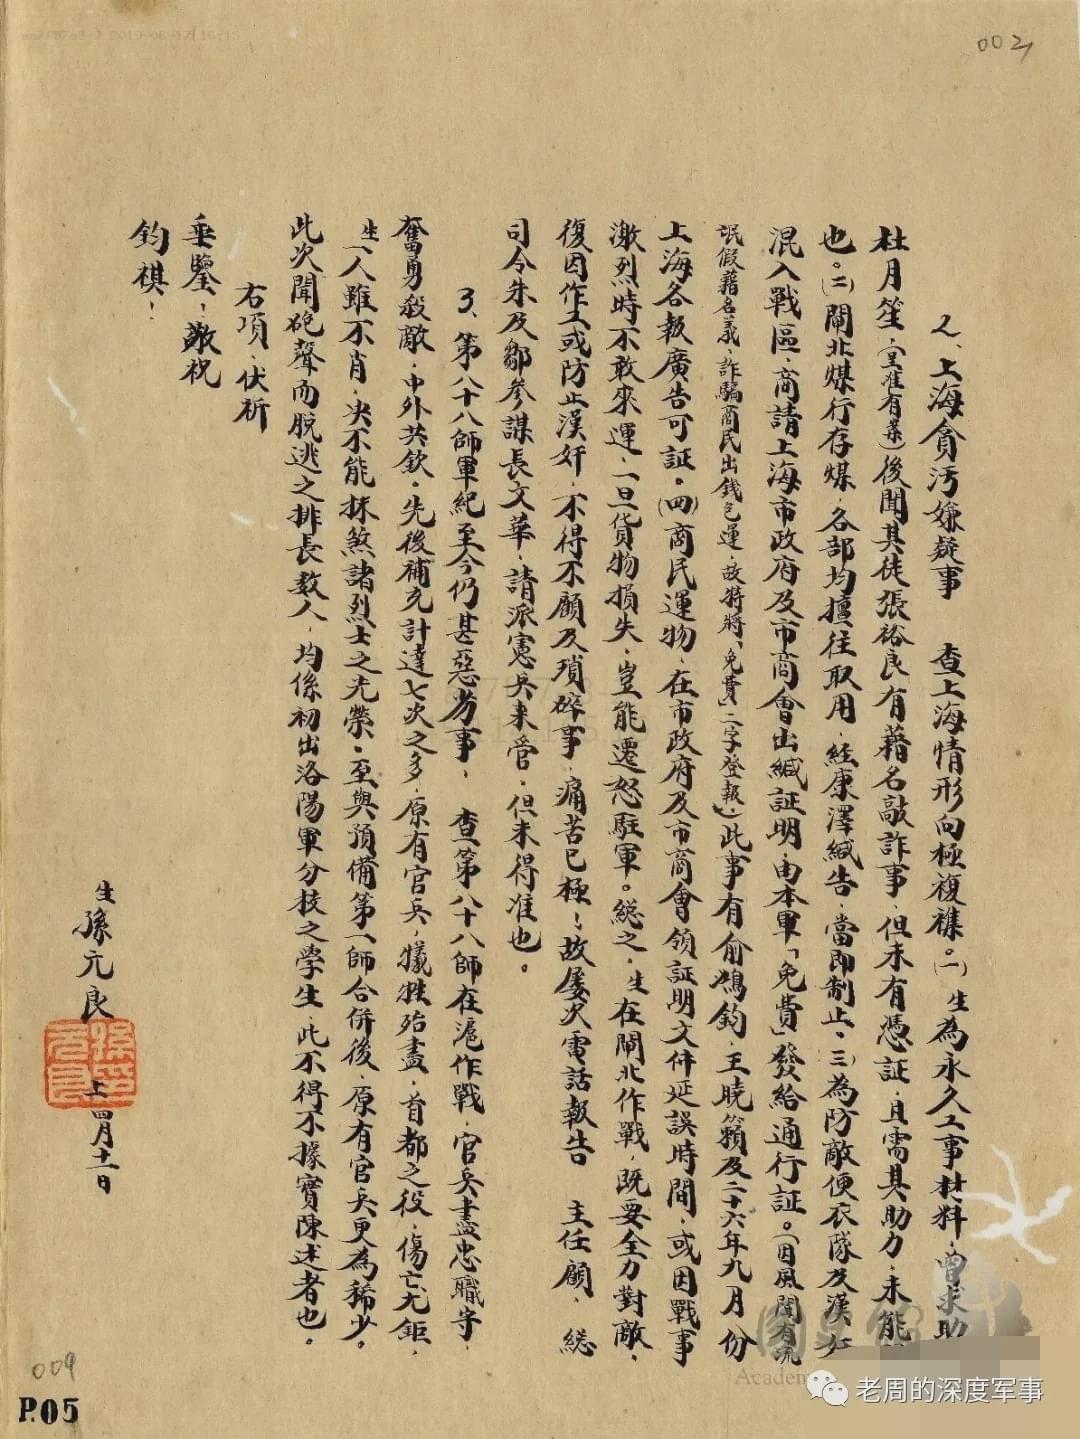 002
2、上海貪污嫌疑事 查上海情形向極複襍。(一)生為永久工事材料,曾求助
杜月笙,(呈准有案)後聞其徒張裕良有藉名敲詐事,但未有憑証,且需其助力,未能
也。(二)閘北煤行存煤,各部均擅往取用,經康澤緘告,當即制止。(三)為防敵便衣隊及漢奸
混入戰區,商請上海市政府及市商會出緘証明,由本軍「免費」發給通行証。(因風聞有流
氓假藉名義,詐騙商民出錢包運,故特將「免費」二字登報)此事有俞鴻鈞,王曉籟及二十六年九月份
上海各報廣告可証。(四)商民運物,在市政府及市商會領証明文件延誤時間,或因戰事
激烈時不敢來運,一旦貨物損失,豈能遷怒駐軍。總之,生在閘北作戰,既要全力對敵,
復因作工或防止漢奸,不得不顧及瑣碎事,痛苦已極!故屡次電話報告 主任顧,總
司令朱及鄒參謀長文華,請派憲兵来管,但未得准也。
3、第八十八師軍紀至今仍甚惡劣事, 查第八十八師在滬作戰,官兵盡忠職守,
奮勇殺敵,中外共欽。先後補充計達七次之多,原有官兵,犧牲殆盡,首都之役,傷亡尤鉅,
生一人雖不肖,决不能抹煞諸烈士之光榮。至與預備第一師合併後,原有官兵更為稀少。
此次聞砲聲而脫逃之排長数人,均係初出洛陽軍分校之學生,此不得不據實陳述者也。
右項,伏祈
垂鑒,敬祝
鈞祺!
生孫元良 上 四月十一日
孫元良印
009
P.05
國史館
Academ
老周的深度军事